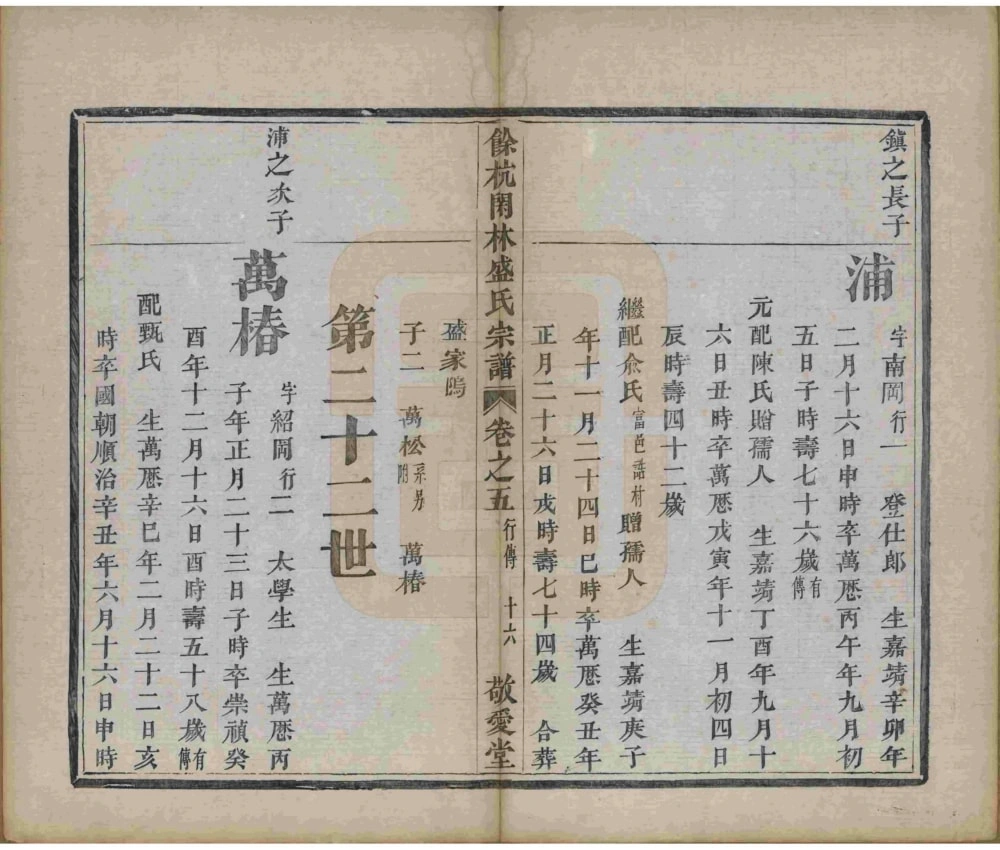 鎮之長子
浦
字南岡行一 登仕郎 生嘉靖辛卯年
二月十六日申時卒萬厯丙午年九月初
五日子時壽七十六歲有傳
元配陳氏贈孺人 生嘉靖丁酉年九月十
六日丑時卒萬厯戊寅年十一月初四日
辰時壽四十二歲
繼配俞氏富邑諸村贈孺人 生嘉靖庚子
年十一月二十四日巳時卒萬厯癸丑年
正月二十六日戌時壽七十四歲 合葬
餘杭閑林盛氏宗譜 卷之五 行傳 十六 敬愛堂
盛家塢
子二 萬松系另附 萬椿
第二十二世
沛之次子
萬椿
字紹岡行二 太學生 生萬厯丙
子年正月二十三日子時卒崇禎癸
酉年十二月十六日酉時壽五十八歲有傳
配甄氏 生萬厯辛巳年二月二十二日亥
時卒國朝順治辛丑年六月十六日申時